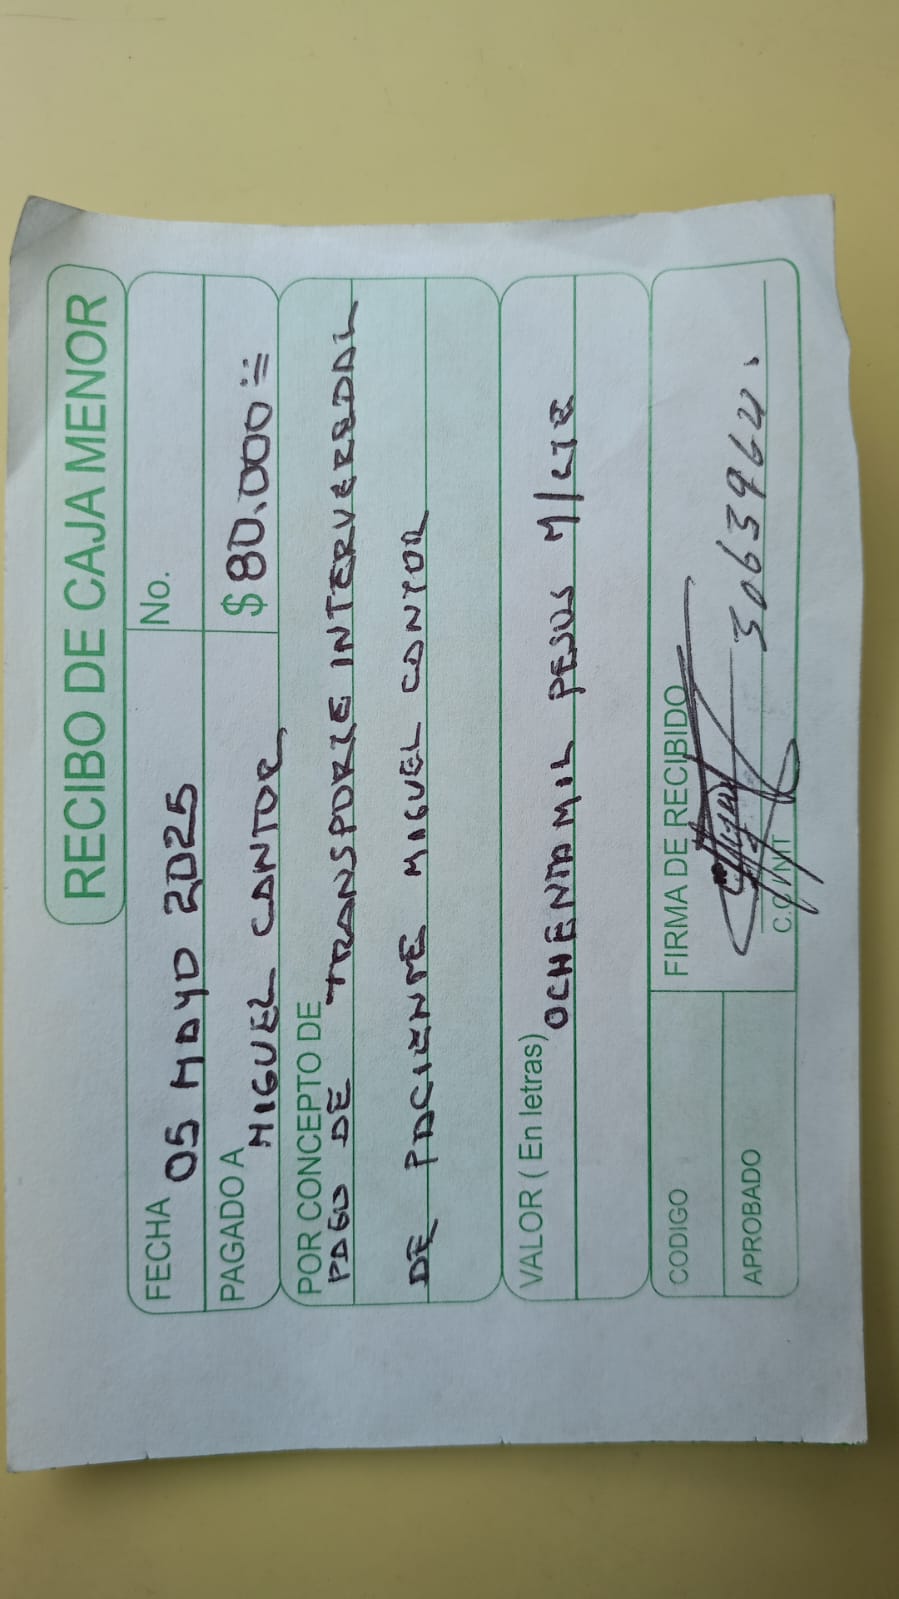 RECIBO DE CAJA MENOR
FECHA 05 MAYO 2025 No.
PAGADO A MIGUEL CANTOR $ 80.000=
POR CONCEPTO DE
PAGO DE TRANSPORTE INTERVEREDAL
DE PACIENTE MIGUEL CANTOR
VALOR ( En letras) OCHENTA MIL PESOS M/CTE
CODIGO
FIRMA DE RECIBIDO
APROBADO
C.C./NIT 3063964.